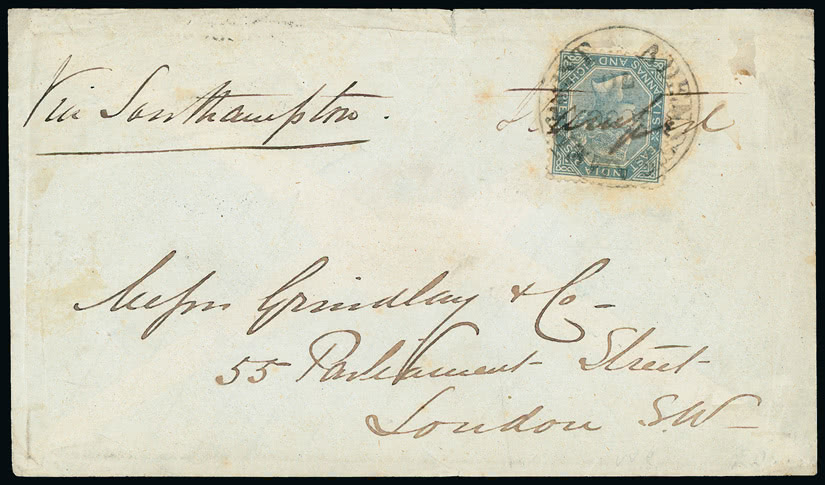 Via Southampton.
EAST INDIA POSTAGE
SIX ANNAS AND EIGHT PIES
Messrs Grindlay & Co-
55 Parliament Street
London S.W-